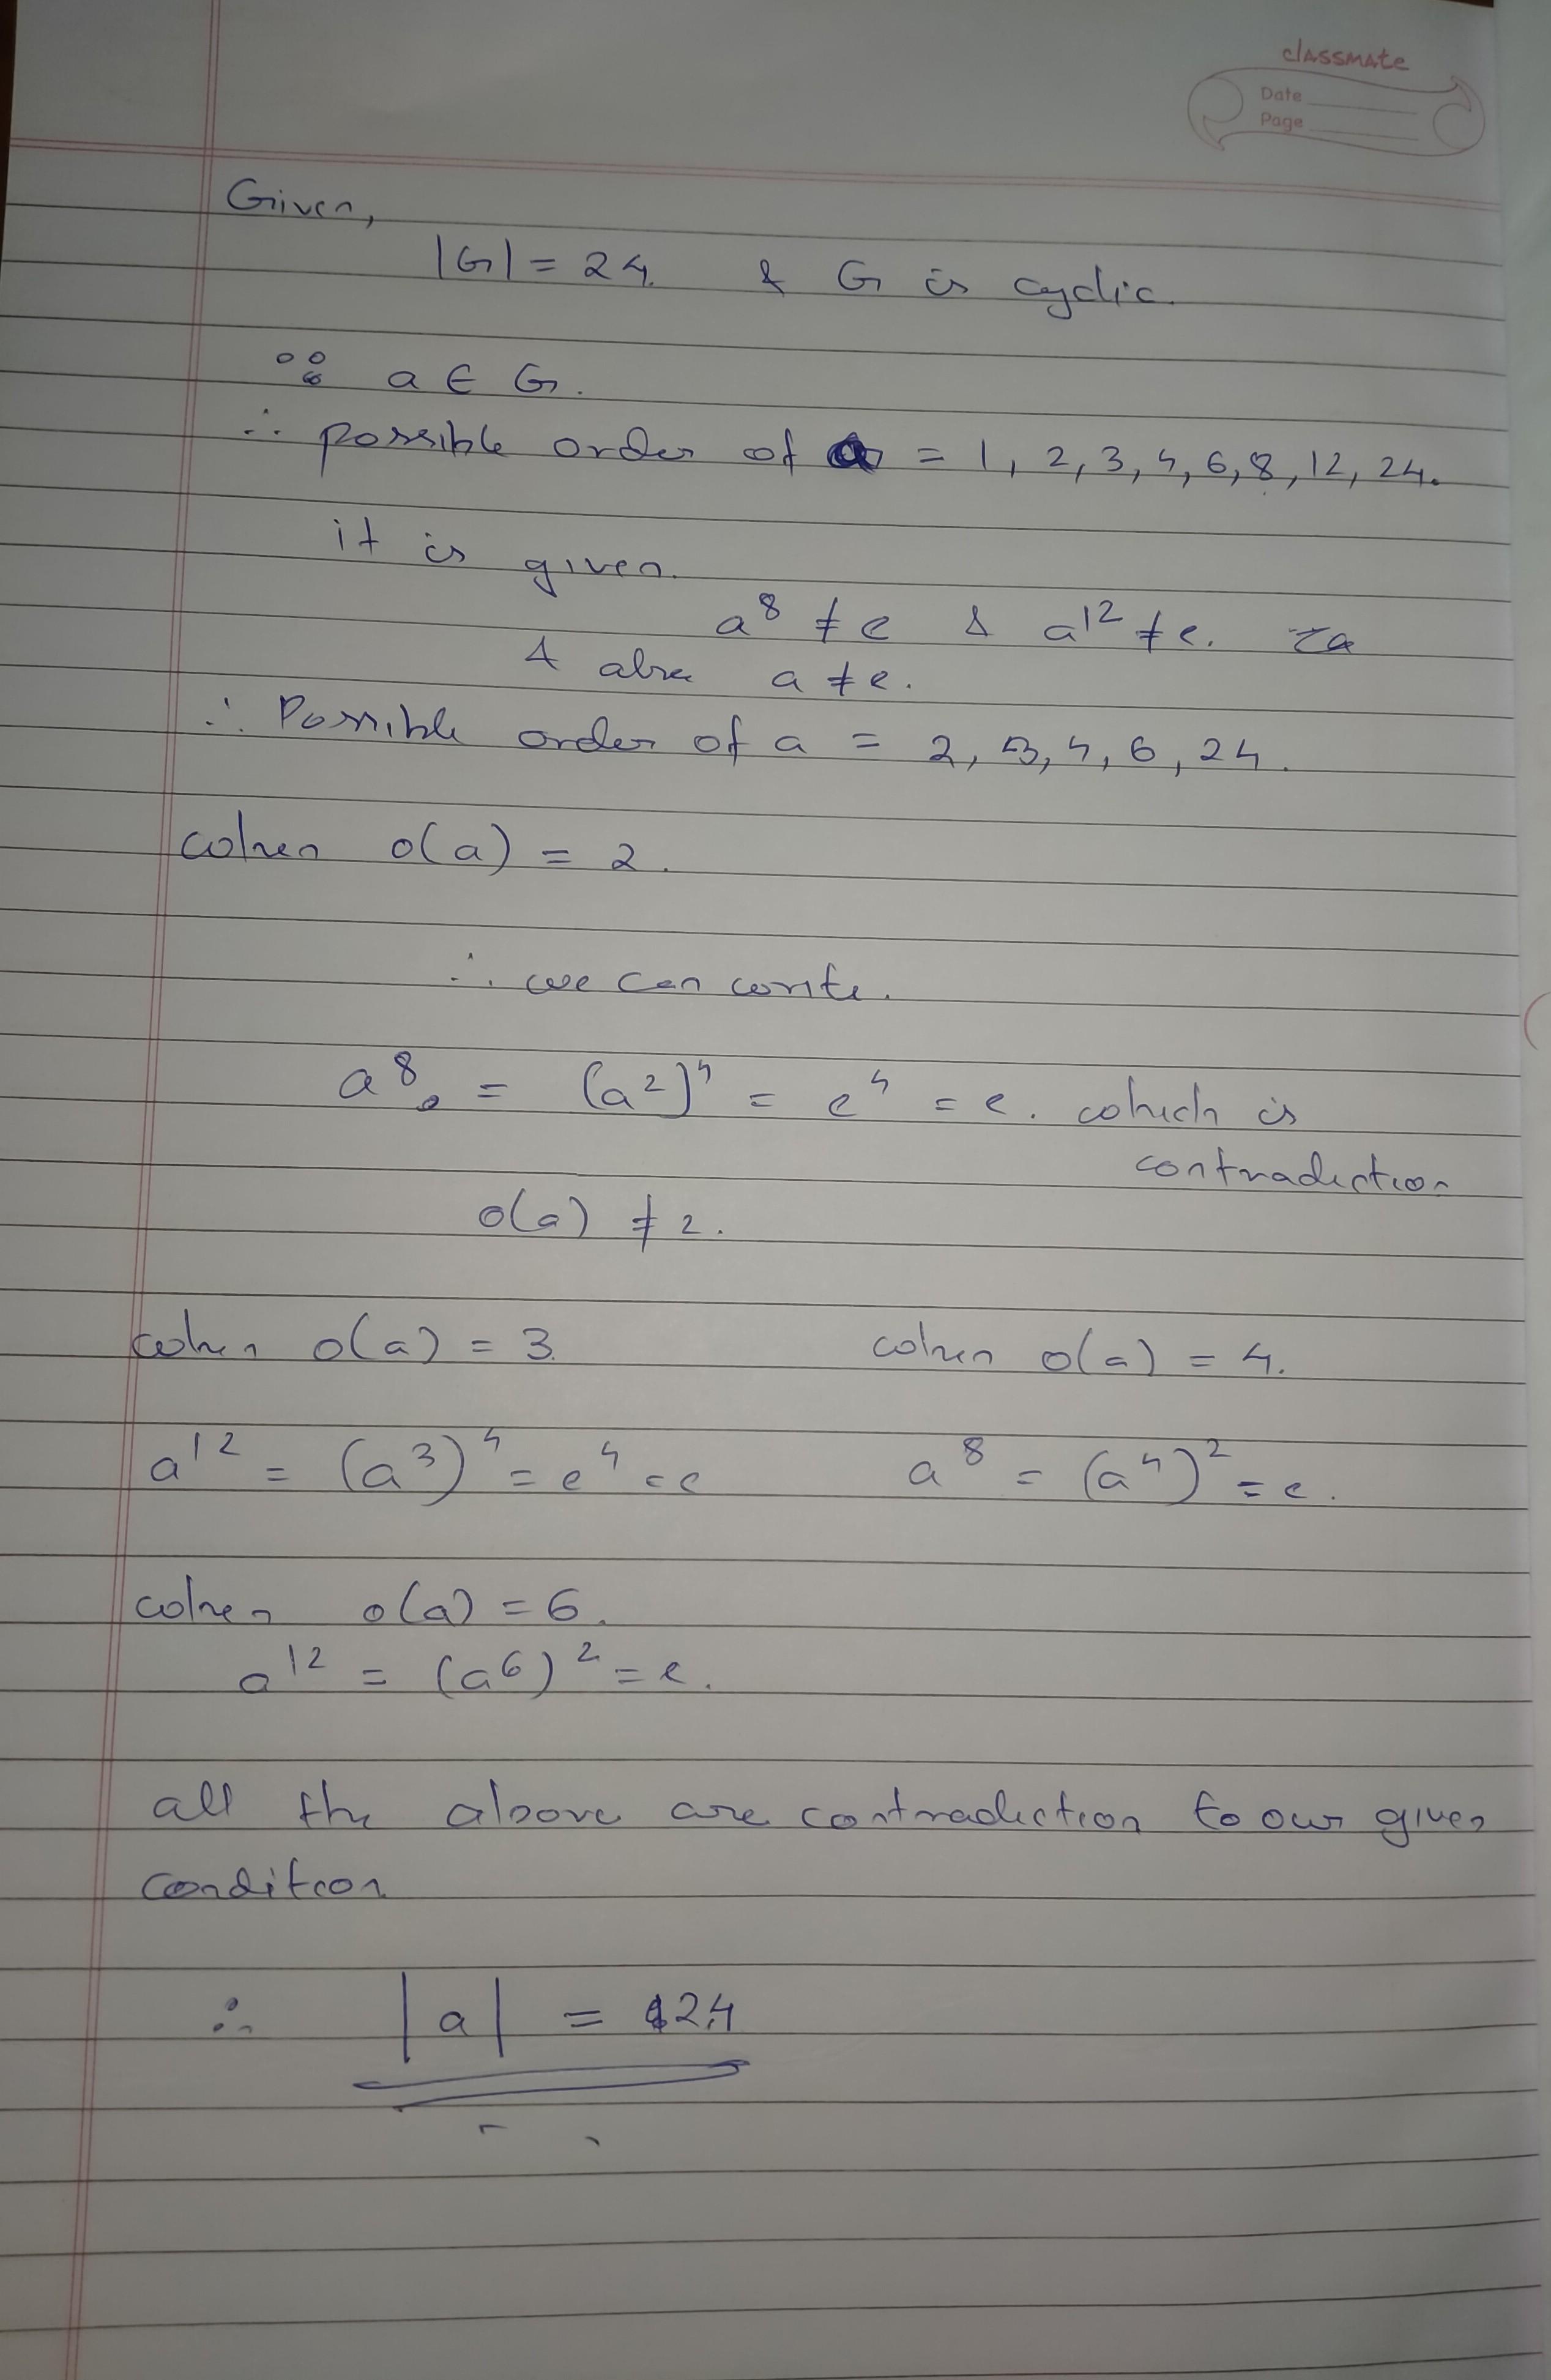 classmate
Date
Page
Given,
|G| = 24. & G is cyclic.
∵ a ∈ G.
∴ possible order of a = 1, 2, 3, 4, 6, 8, 12, 24.
it is given.
a⁸ ≠ e & a¹² ≠ e.
& also a ≠ e.
∴ Possible order of a = 2, 3, 4, 6, 24.
when o(a) = 2.
∴ we can write.
a⁸ = (a²)⁴ = e⁴ = e. which is
contradiction
o(a) ≠ 2.
when o(a) = 3. when o(a) = 4.
a¹² = (a³)⁴ = e⁴ = e a⁸ = (a⁴)² = e.
when o(a) = 6.
a¹² = (a⁶)² = e.
all the above are contradiction to our given
condition
∴ |a| = 24